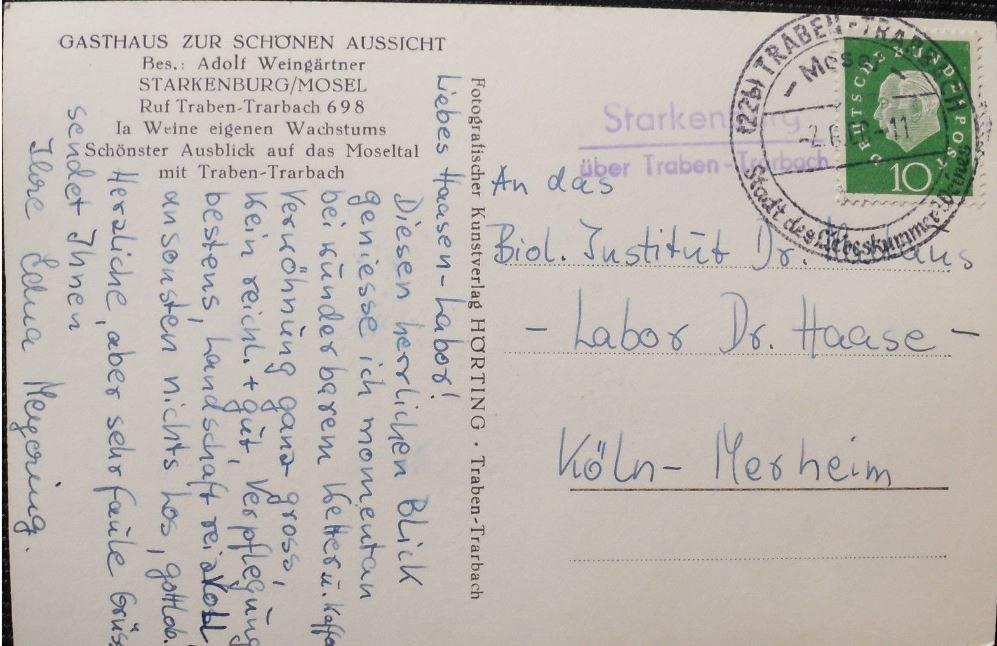 GASTHAUS ZUR SCHÖNEN AUSSICHT
Bes.: Adolf Weingärtner
STARKENBURG/MOSEL
Ruf Traben-Trarbach 698
Ia Weine eigenen Wachstums
Schönster Ausblick auf das Moseltal
mit Traben-Trarbach
Liebes Haasen-Labor!
Diesen herrlichen Blick
geniesse ich momentan
bei wunderbarem Wetter u. Kaffee
Verwöhnung ganz gross,
Wein reichl. + gut, Verpflegung
bestens, Landschaft reizvoll
ansonsten nichts los, gottlob.
Herzliche, aber sehr faule Grüsse
sendet Ihnen
Ihre
Fotografischer Kunstverlag HÖRTING · Traben-Trarbach
(22b) TRABEN-TRARBACH
- Mosel -
-11
Stadt des
DEUTSCHE BUNDESPOST
10
Starkenburg
über Traben-Trarbach
An das
Biol. Institut Dr.
- Labor Dr. Haase -
Köln- Merheim